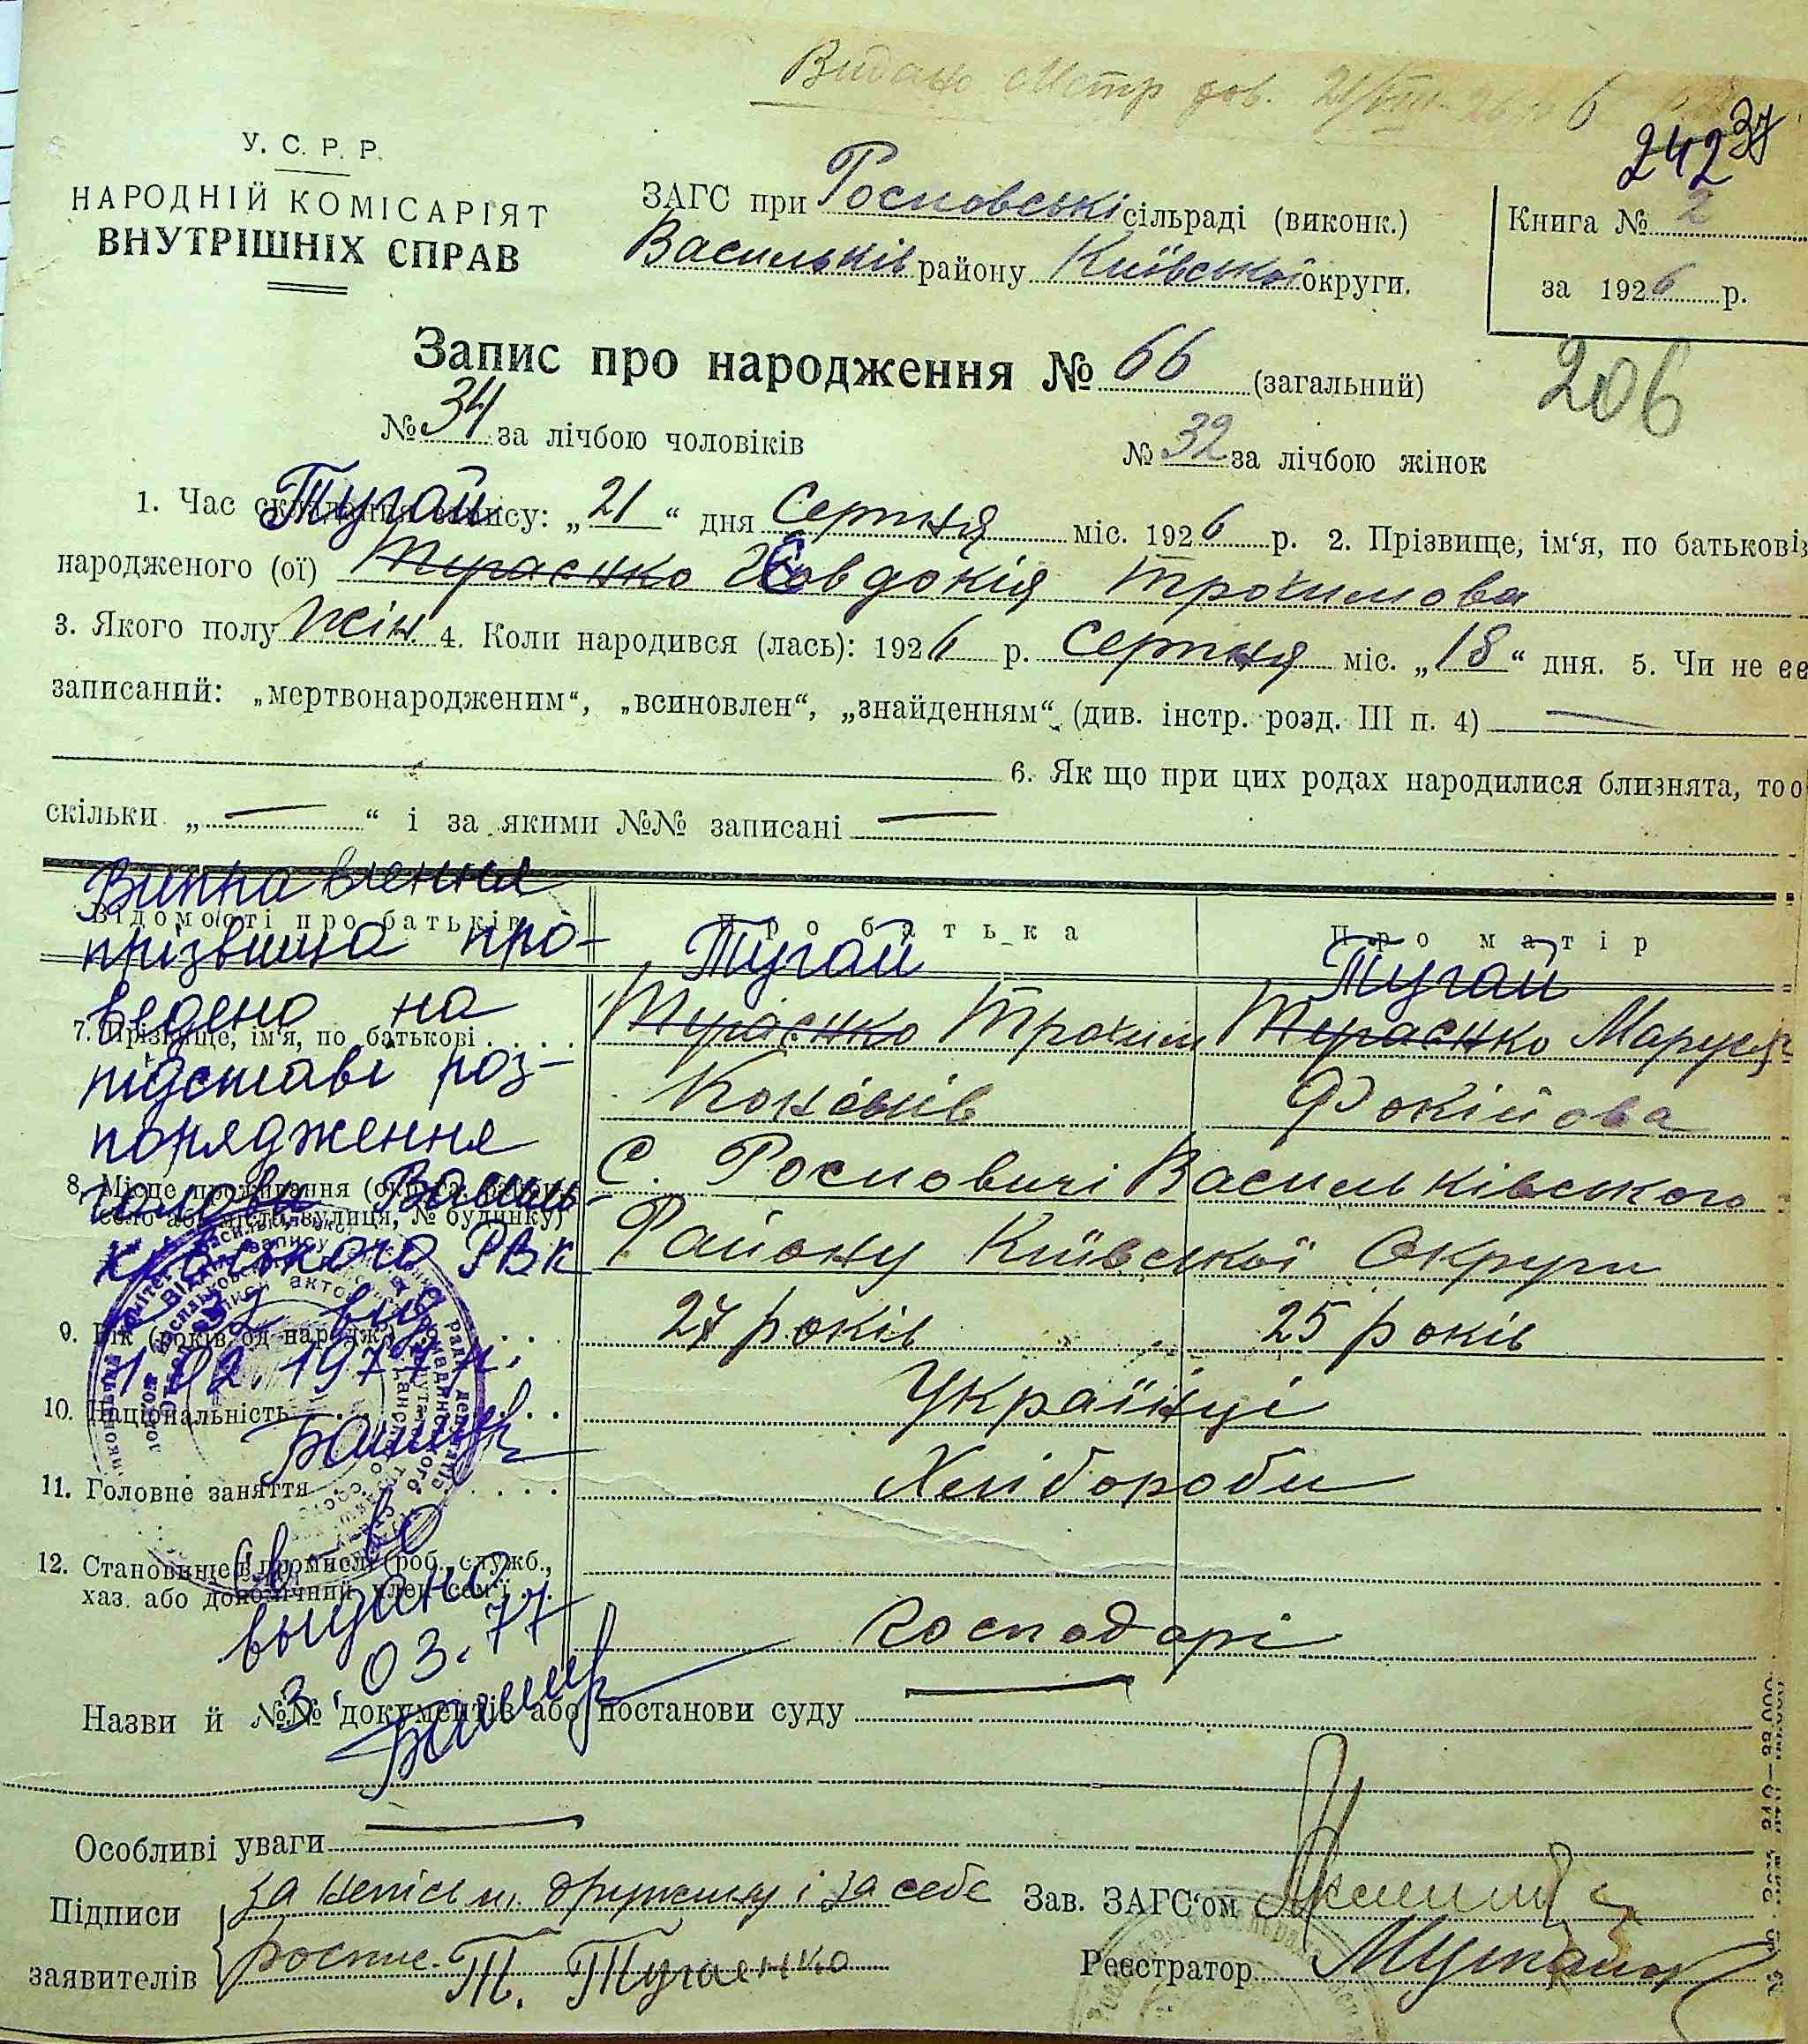 Видано Метр дов. 21/VIII-26 р. 6
242 37
У. С. Р. Р.
НАРОДНІЙ КОМІСАРІЯТ
ВНУТРІШНІХ СПРАВ
ЗАГС при Росновські сільраді (виконк.)
Васильків району Київської округи.
Книга № 2
за 1926 р.
Запис про народження № 66 (загальний)
206
№ 34 за лічбою чоловіків
№ 32 за лічбою жінок
Тугай
1. Час складання запису: „21“ дня Серпня міс. 1926 р. 2. Прізвище, ім‘я, по батькові
народженого (ої) Тугаєнко Євдокія Трохимова
3. Якого полу жін. 4. Коли народився (лась): 1926 р. Серпня міс. „18“ дня. 5. Чи не є
записаний: „мертвонародженим“, „всиновлен“, „знайденням“ (див. інстр. розд. III п. 4)
6. Як що при цих родах народилися близнята, то
скільки „ “ і за якими №№ записані
Виправлення
прізвища про-
ведено на
підставі роз-
порядження
голови Василь-
ківського РВК
№ 32 від
1.02.1977 р.
Св-во
выдано
3.03.77
Відомості про батьків
Про батька
Про матір
Тугай
Тугай
7. Прізвище, ім‘я, по батькові
Тугаєнко Трохим
Тугаєнко Маруся
Кононів
Фокійова
8. Місце проживання (округа, район,
село або місто, вулиця, № будинку)
С. Росновичі Васильківського
Району Київської Округи
9. Вік (років од народж.)
27 років
25 років
10. Національність
Українці
11. Головне заняття
Хлібороби
12. Становище в промислі (роб., служб.,
хаз. або допомічний член сем‘ї
господарі
Назви й №№ документів або постанови суду
Особливі уваги
Підписи
заявителів
за непись м. дружину і за себе
роспис. Т. Тугаєнко
Зав. ЗАГС‘ом
Реєстратор